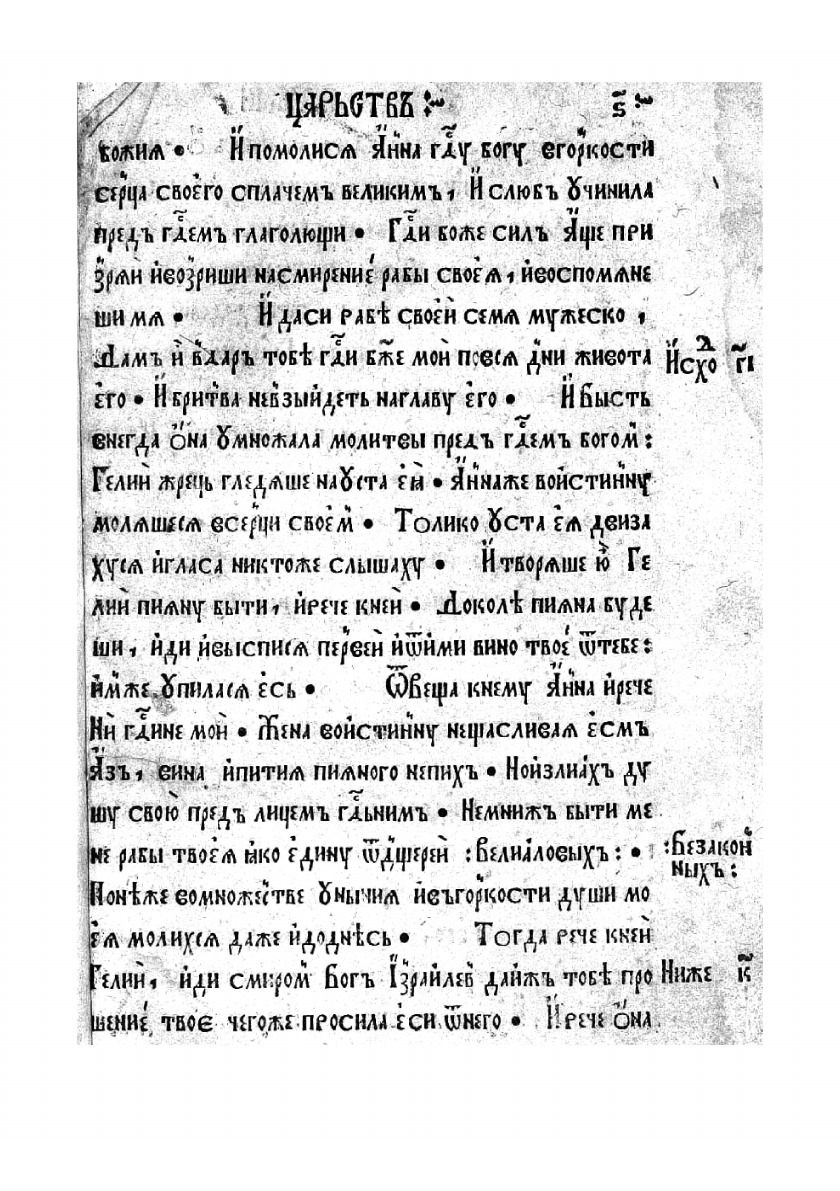 ЦАРЬСТВЪ :~ ѕ҃ :~
божия • И҆ помолися А҆нна гд҃ꙋ богꙋ вгоркости
серца своего сплачемъ великимъ, И҆ слюбъ ꙋчинила
предъ гд҃емъ глаголющи • Гд҃и боже силъ А҆ще при
зряй и҆воз̾риши насмирение рабы своея, и҆воспомяне
ши мя • И҆ даси рабѣ своей семя мꙋжеско,
Дамъ и҆ в̾даръ тобѣ гд҃и бж҃е мой повся дни живота
е҆го • И҆ бритва невзыйдеть наглавꙋ е҆го • И҆ бысть
внегда ѻ҆на ꙋмножала молитвы предъ гд҃емъ богом̾ :
Гелий жрець гледяше наꙋста ея • А҆ннаже воистиннꙋ
молящеся всерци своем̾ • Толико ꙋста е҆я двиза
хꙋся и҆гласа никтоже слышахꙋ • И҆ творяше ю҆ Ге
лий пиянꙋ быти, и҆рече кней • Доколѣ пияна бꙋде
ши, и҆ди и҆выспися первей и҆ѿими вино твое ѿтебе :
и҆м̾же ꙋпилася е҆сь • Ѿвеща кнемꙋ А҆нна и҆рече
Ни гд҃ине мой • Жена воистиннꙋ нещасливая е҆смъ
А҆зъ, вина и҆пития пияного непихъ • Но и҆злиахъ дꙋ
шꙋ свою предъ лицемъ гд҃ьнимъ • Немнижъ быти ме
не рабы твоея ꙗко е҆динꙋ ѿдщерей :Велиаловыхъ: •
Понѣже вомножестве ꙋнычия и҆въгоркости дꙋши мо
е҆я молихся даже и҆доднѣсь • Тогда рече кней
Гелий, и҆ди смиром̾ Богъ І҆зраилев̾ дайжъ тобѣ про
шение твоє чегоже просила е҆си ѿнего • И҆ рече ѻ҆на
И҆схоⷣ г҃і
:Безакон̾
ныхъ:
Ниже к҃